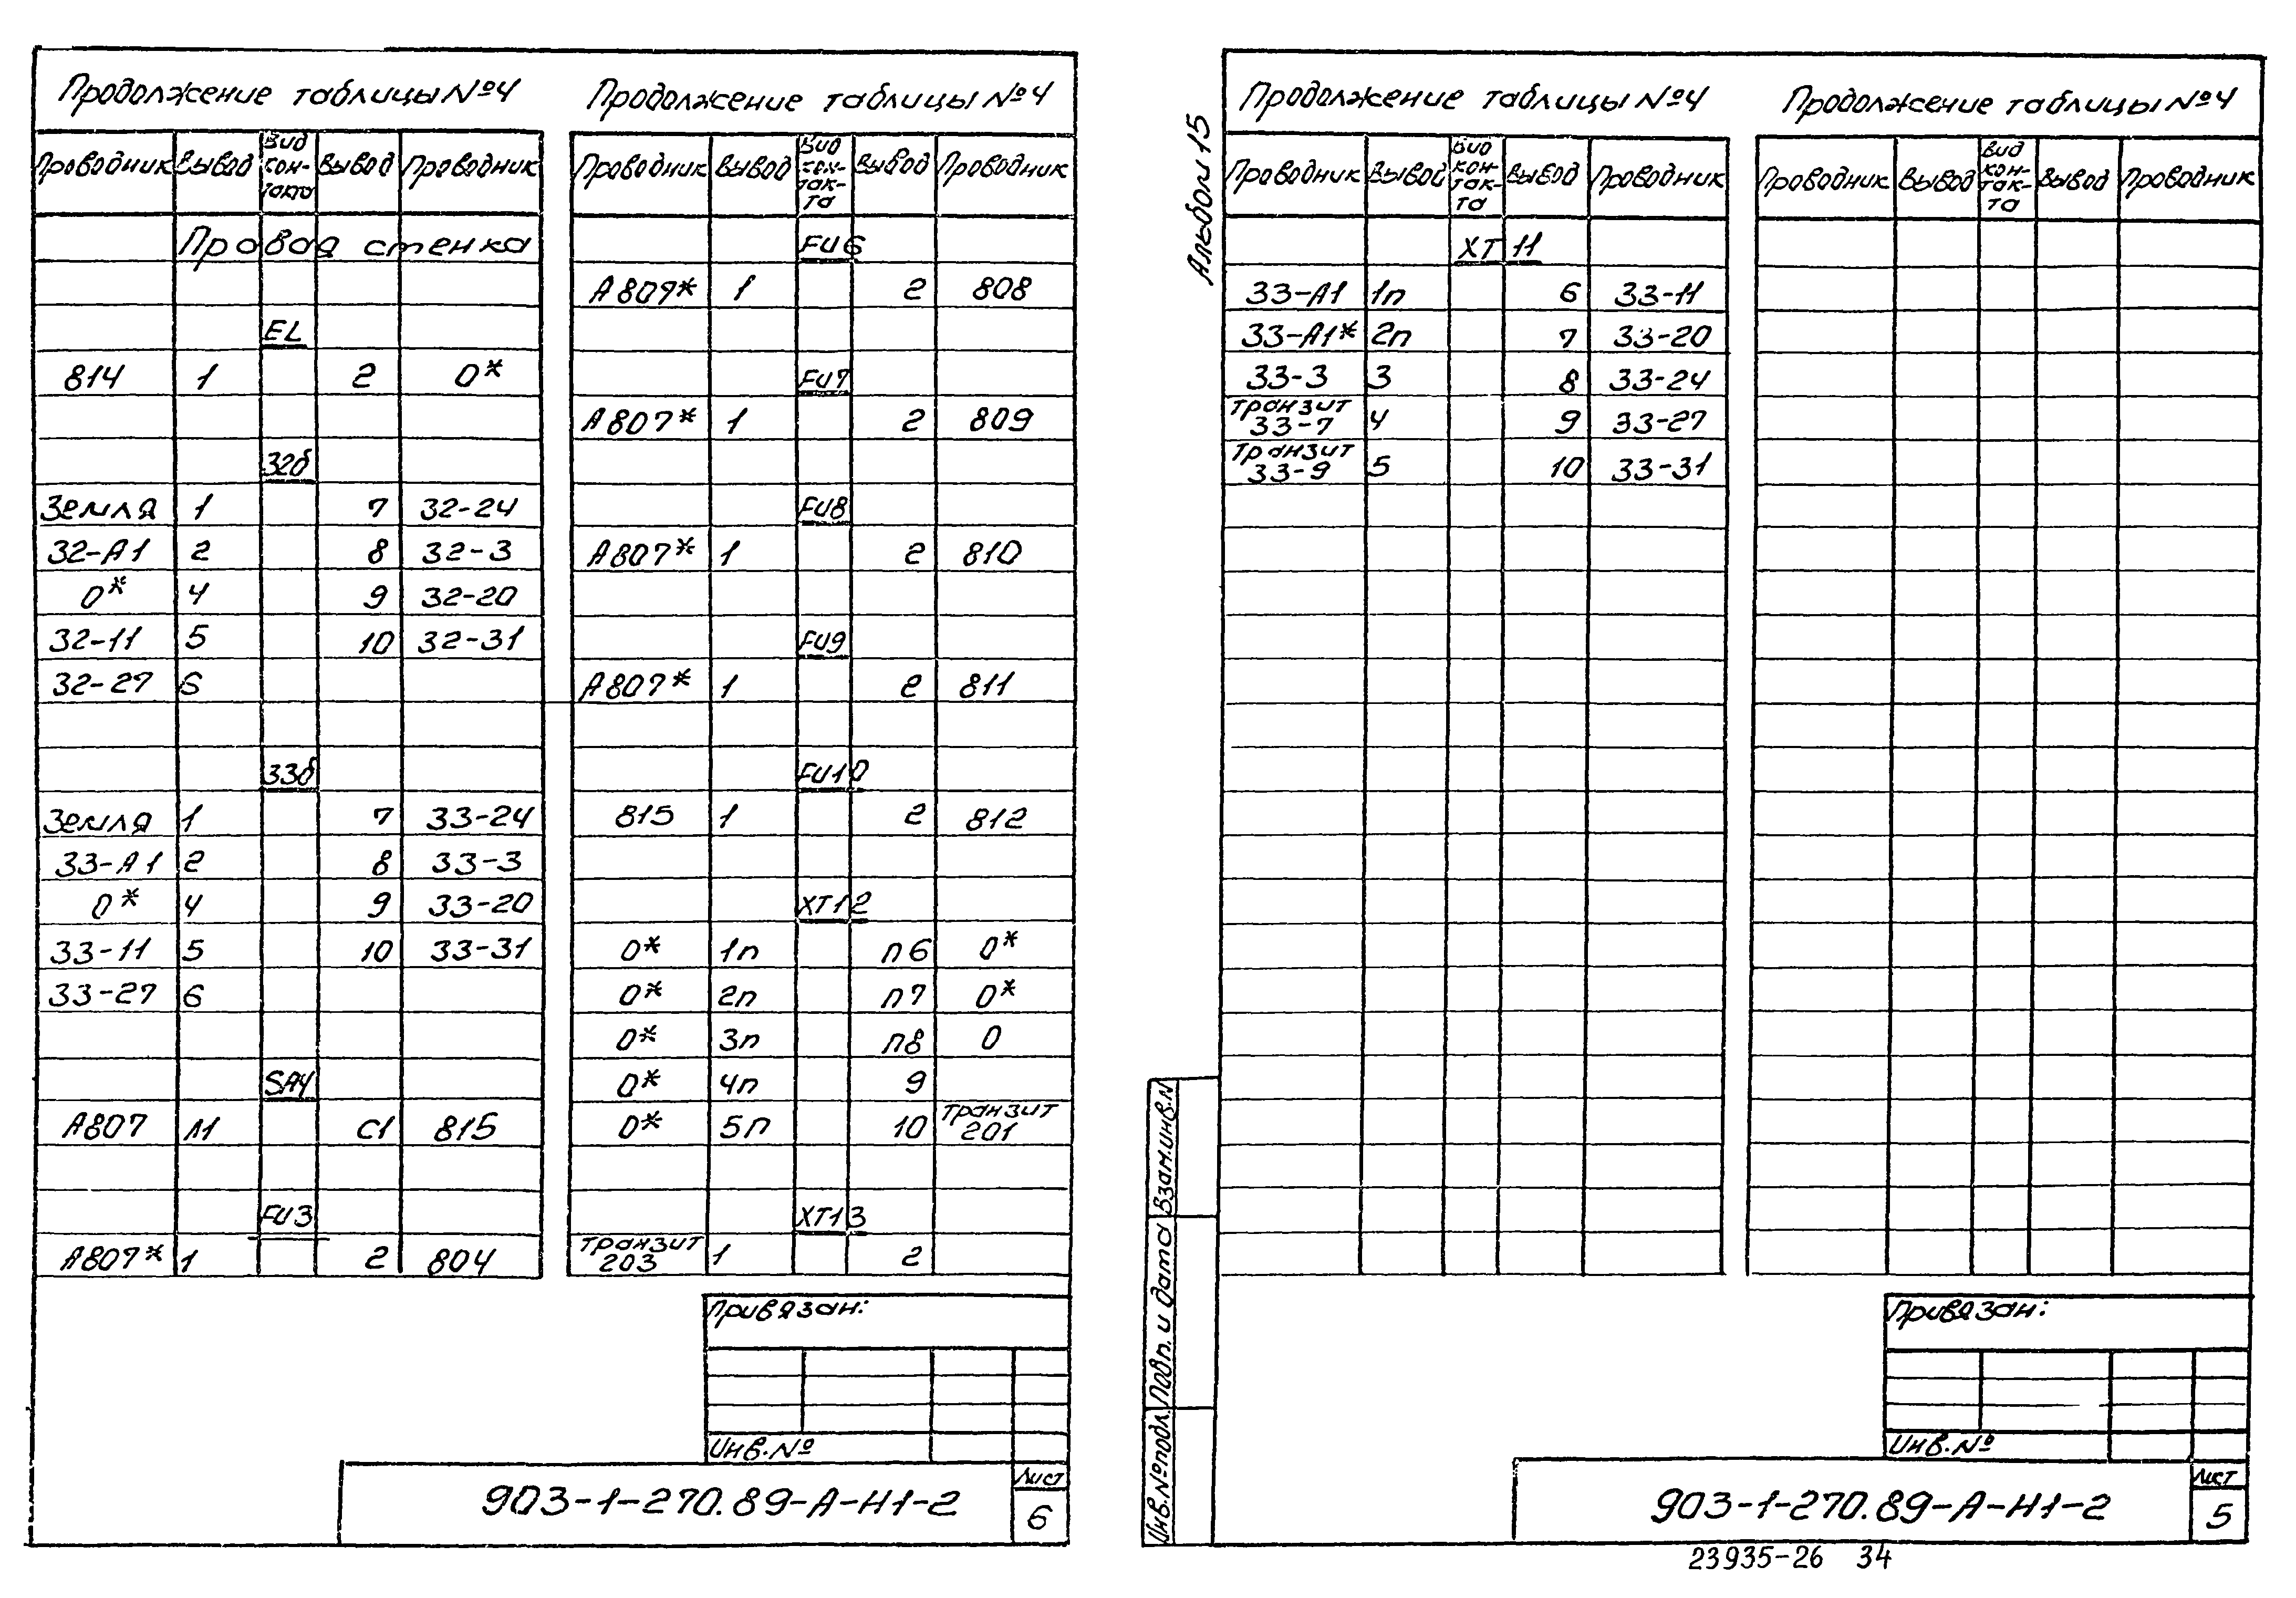 Продолжение таблицы №4
Проводник Вывод Вид кон- такта Вывод Проводник
Правая стенка
EL
814 1 2 0*
32б
Земля 1 7 32-24
32-А1 2 8 32-3
0* 4 9 32-20
32-11 5 10 32-31
32-27 6
33б
Земля 1 7 33-24
33-А1 2 8 33-3
0* 4 9 33-20
33-11 5 10 33-31
33-27 6
SA4
А807 Л1 С1 815
FU3
А807* 1 2 804
Продолжение таблицы №4
Проводник Вывод Вид кон- так- та Вывод Проводник
FU6
А807* 1 2 808
FU7
А807* 1 2 809
FU8
А807* 1 2 810
FU9
А807* 1 2 811
FU10
815 1 2 812
XT12
0* 1п п6 0*
0* 2п п7 0*
0* 3п п8 0
0* 4п 9
0* 5п 10 транзит 201
XT13
транзит 203 1 2
Привязан:
Инв.№
903-1-270.89-А-Н1-2
Лист
6
Альбом 15
Продолжение таблицы №4
Проводник Вывод Вид кон- так- та Вывод Проводник
XT 11
33-А1 1п 6 33-11
33-А1* 2п 7 33-20
33-3 3 8 33-24
транзит 33-7 4 9 33-27
транзит 33-9 5 10 33-31
Продолжение таблицы №4
Проводник Вывод Вид кон- так- та Вывод Проводник
Взам.инв.N
Подп. и дата
Инв.№подл.
Привязан:
Инв.№
903-1-270.89-А-Н1-2
Лист
5
23935-26 34